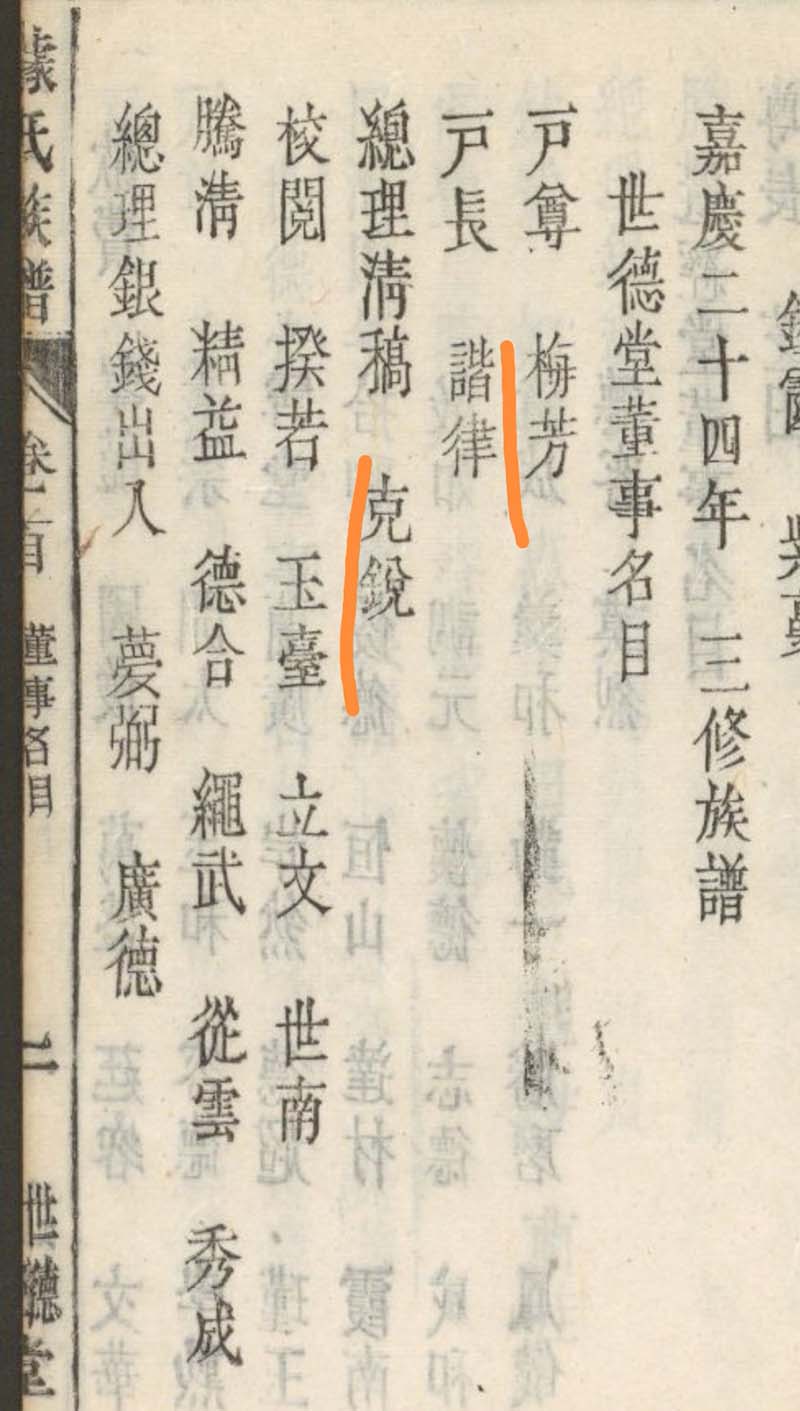 嘉慶二十四年 三修族譜
世德堂董事名目
戸尊 梅芳
戸長 諧律
總理淸稿 克銳
校閱 揆若 玉臺 立文 世南
騰淸 精益 德合 繩武 從雲 秀成
總理銀錢出入 夢弼 廣德
氏族譜 卷首 董事名目 二 世德堂